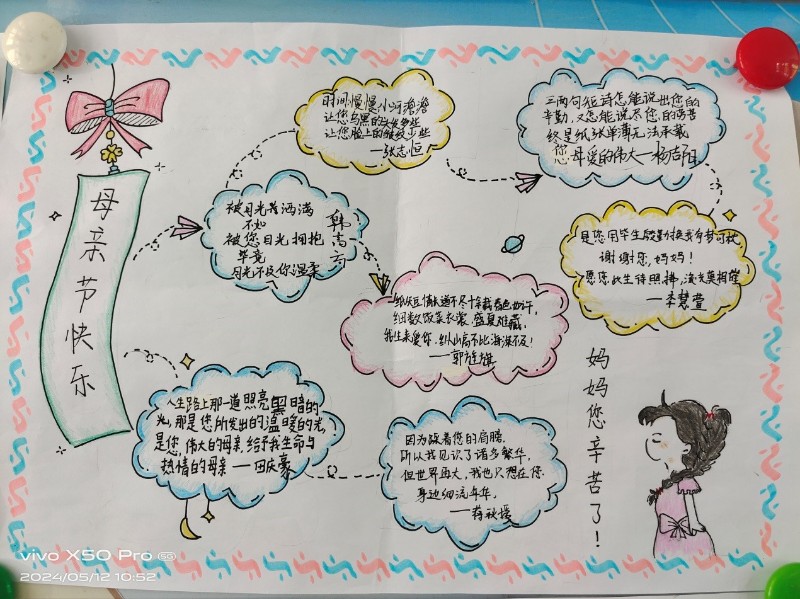 母亲节快乐
时间慢慢 小河澹澹
让您乌黑的头发多些
让您脸上的皱纹少些
——张志恒
三两句短诗怎能说出您的
辛勤,又怎能说尽您的劳苦
终是纸张单薄无法承载
您母爱的伟大—杨吉阳
被月光着洒满
不如
被您目光拥抱
毕竟
月光不及你温柔
韩高云
是您用毕生质量换我有梦可就
谢谢您,妈妈!
愿您此生得照拂,流光莫相催
—李慧萱
纸短情长道不尽十余载春色如许,
细数饭菜衣裳,盛夏难藏,
我生来爱你,纵山高不比海深不及!
——郭旌旗
人生路上那一道照亮黑暗的
光,那是您所发出的温暖的光
是您,伟大的母亲,给予我生命与
热情的母亲 ——田庆豪
因为踩着您的肩膀,
所以我见识了诸多繁华,
但世界再大,我也只想在您
身边细流年年,
——蒋秋媛
妈妈您辛苦了!
vivo X50 Pro 5G
2024/05/12 10:52